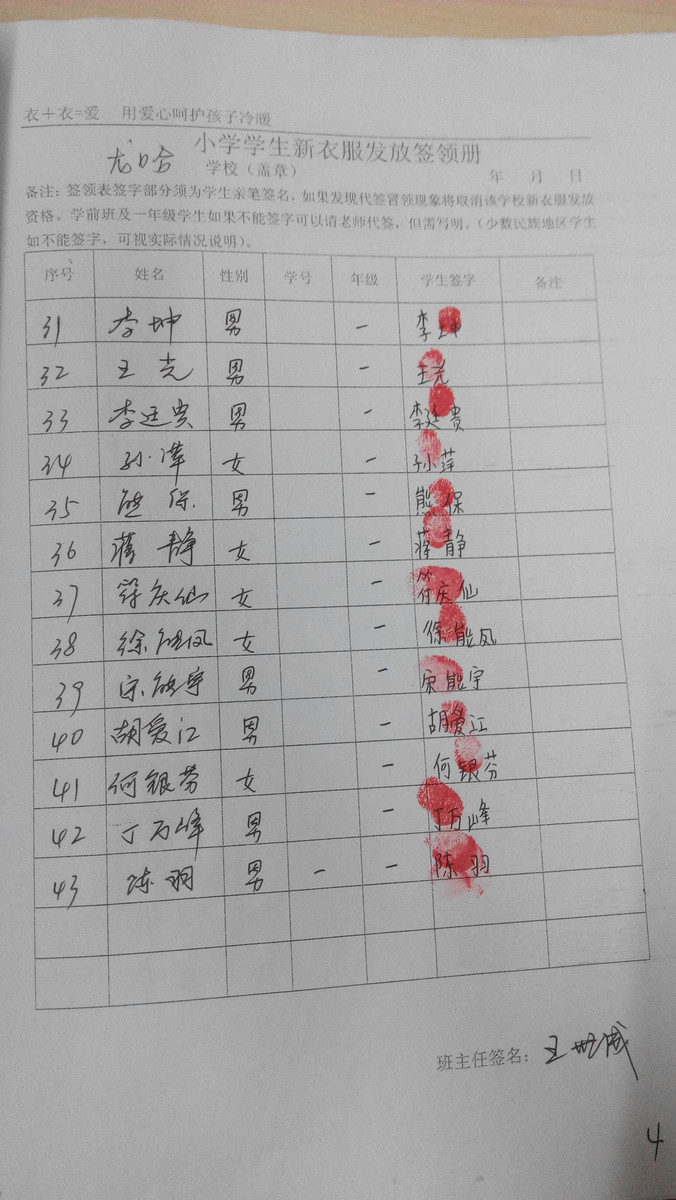 衣+衣=爱 用爱心呵护孩子冷暖
小学学生新衣服发放签领册
尤口哈 学校（盖章） 年 月 日
备注：签领表签字部分须为学生亲笔签名，如果发现代签冒领现象将取消该学校新衣服发放
资格。学前班及一年级学生如果不能签字可以请老师代签，但需写明。（少数民族地区学生
如不能签字，可视实际情况说明）。
序号 姓名 性别 学号 年级 学生签字 备注
31 李坤 男 一 李坤
32 王尧 男 一 王尧
33 李廷贵 男 一 李廷贵
34 孙萍 女 一 孙萍
35 熊保 男 一 熊保
36 蒋静 女 一 蒋静
37 符庆仙 女 一 符庆仙
38 徐能凤 女 一 徐能凤
39 宋能宇 男 一 宋能宇
40 胡爱江 男 一 胡爱江
41 何银芬 女 一 何银芬
42 丁万峰 男 一 丁万峰
43 陈羽 男 一 一 陈羽
班主任签名：王世成
4